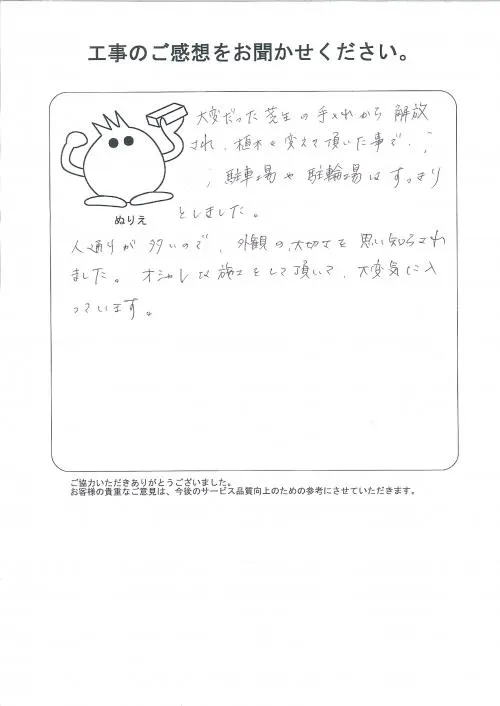 工事のご感想をお聞かせください。
大変だった芝生の手入れから解放
され、植木も変えて頂いた事で、
駐車場や駐輪場はすっきり
としました。
ぬりえ
人通りが多いので、外観の大切さを思い知らされ
ました。オシャレな施工をして頂いて、大変気に入
っています。
ご協力いただきありがとうございました。
お客様の貴重なご意見は、今後のサービス品質向上のための参考にさせていただきます。